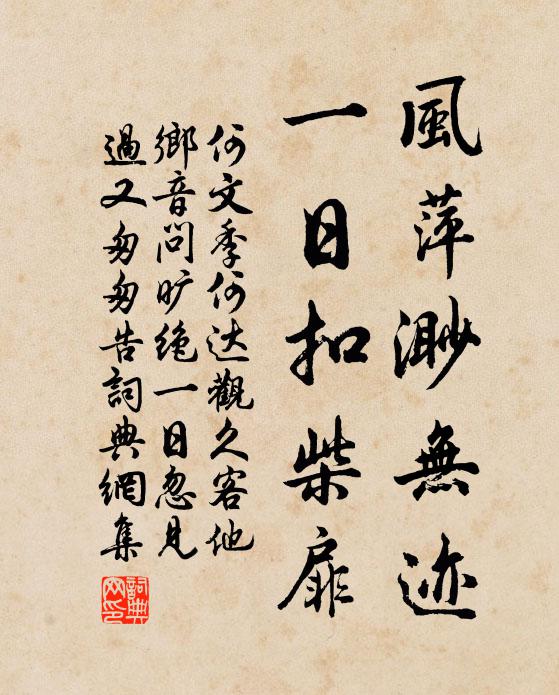 風萍渺無迹
一日扣柴扉
何文季何达觀久客他
鄉音問旷绝一日忽見
過又匆匆告詞典網集
詞典
网印